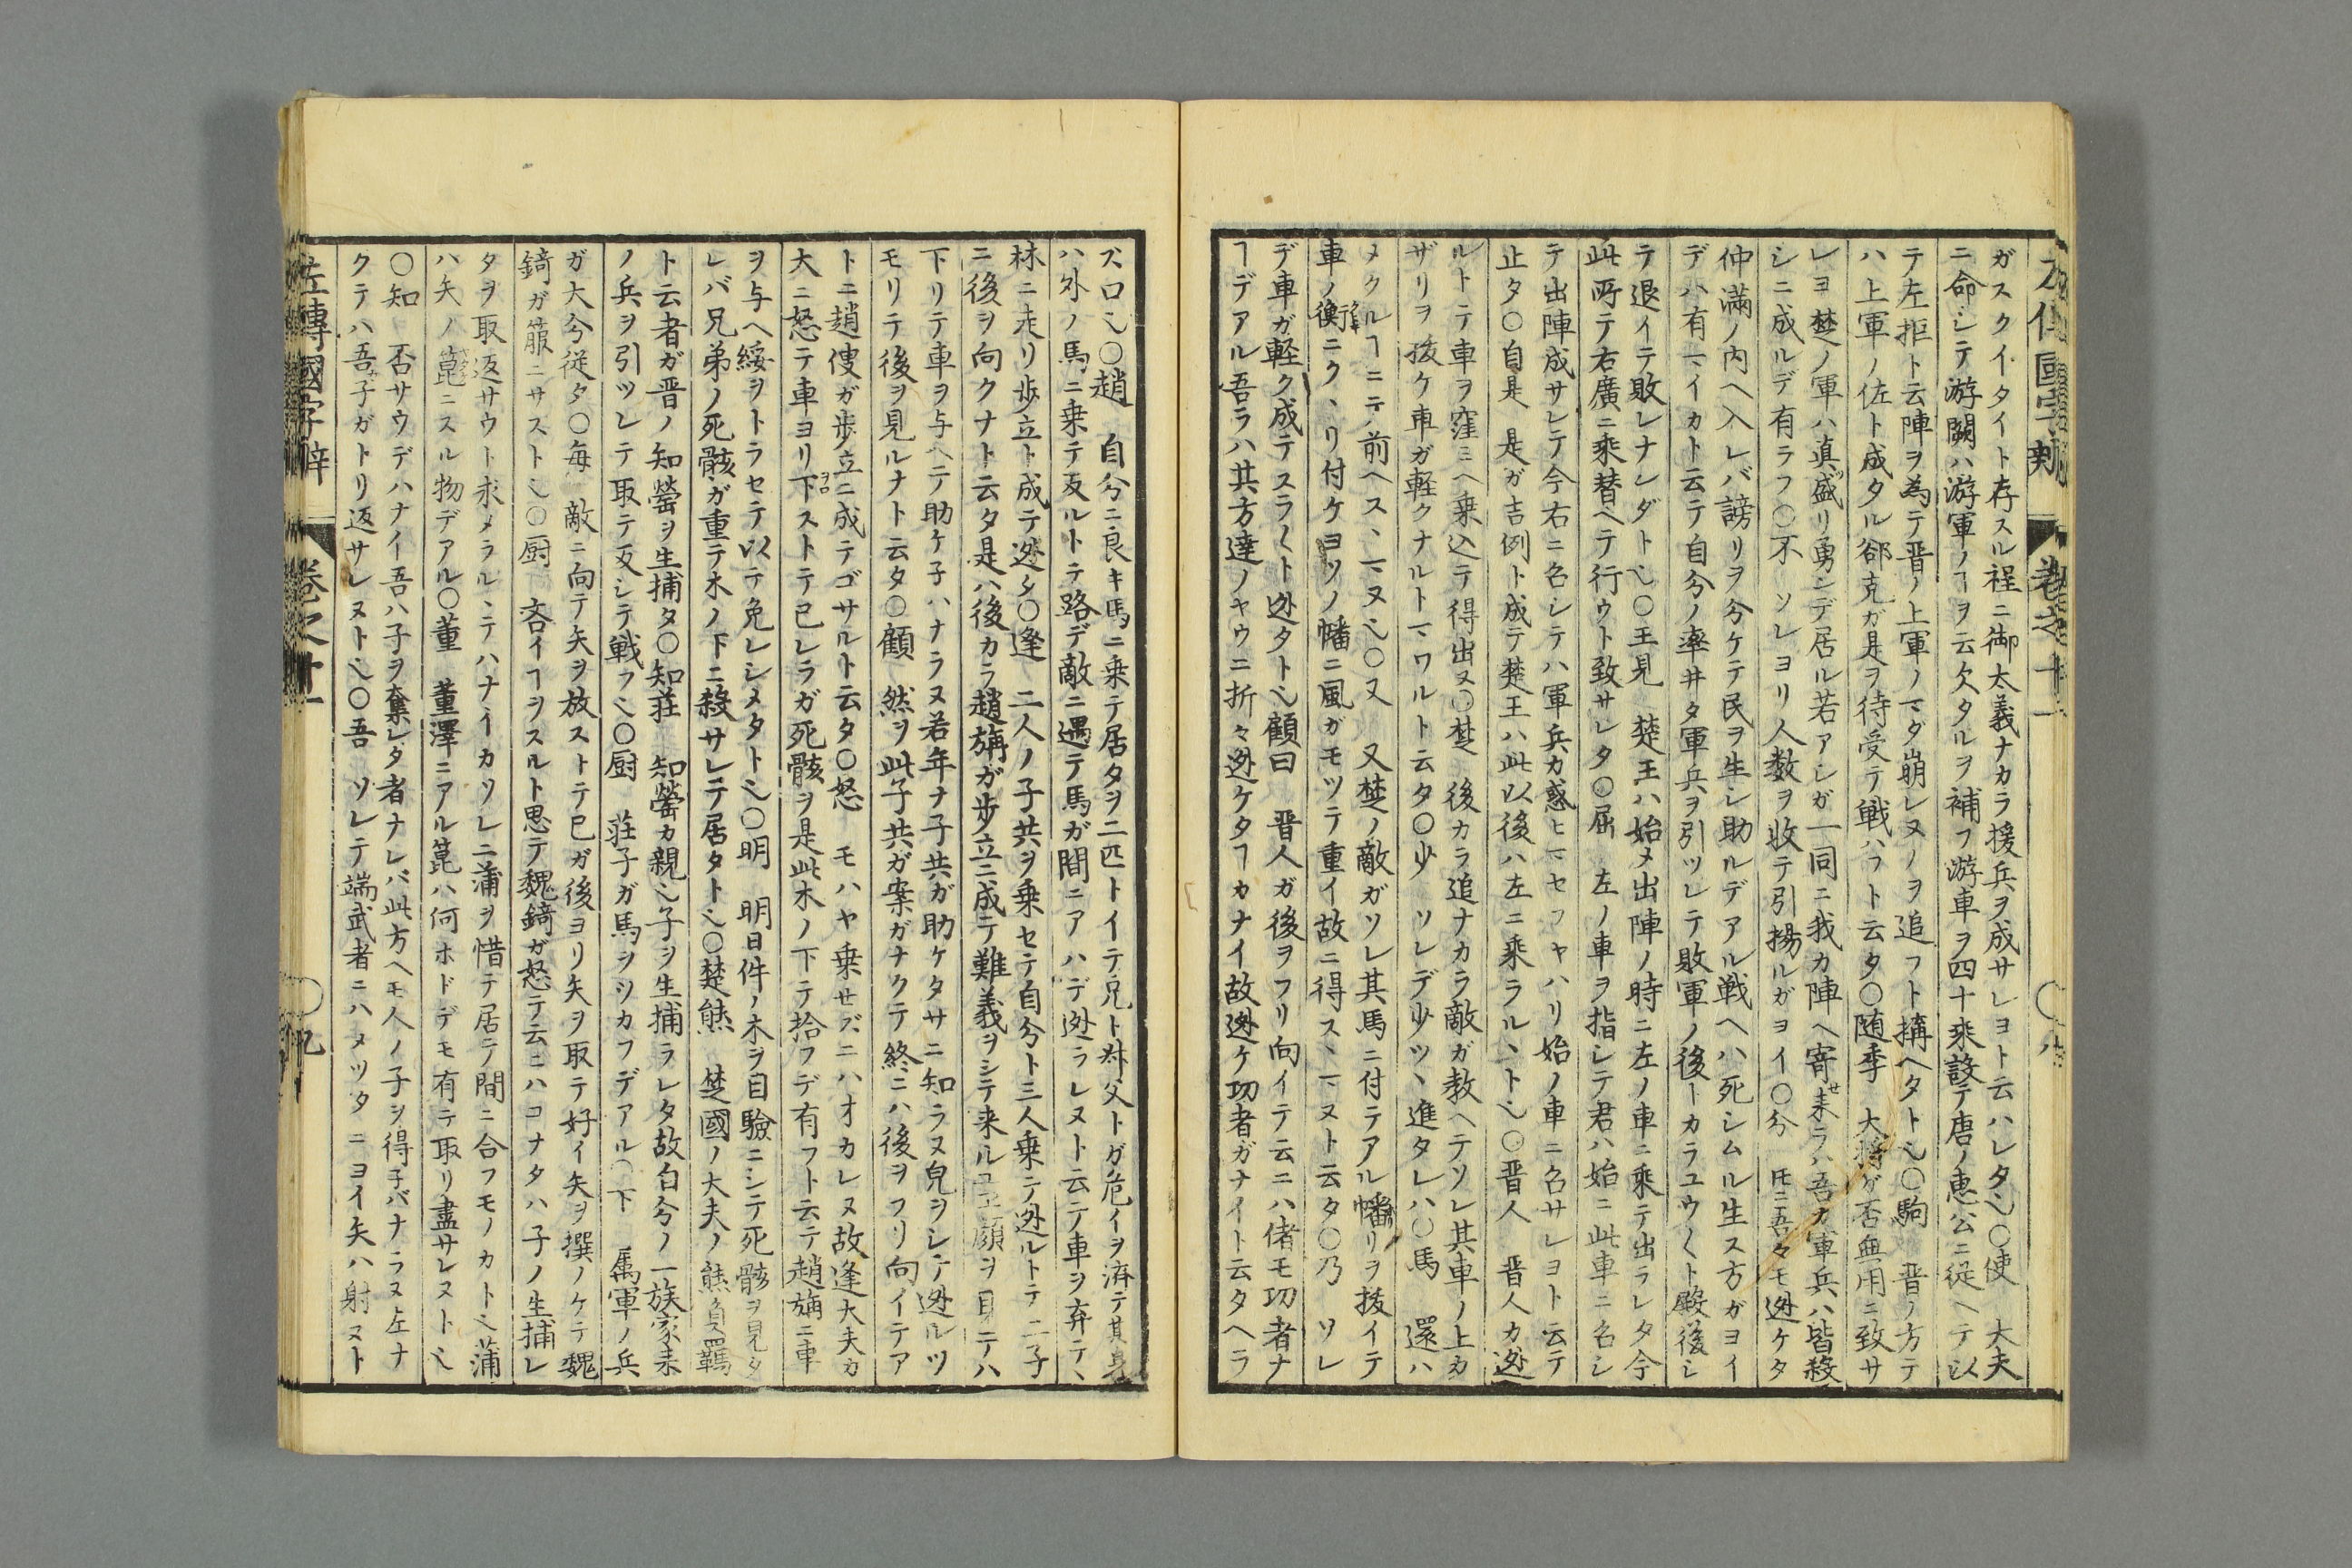 ガスクイタイト存スル程ニ御太義ナカラ援兵ヲ成サレヨト云ハレタ〵〇使 大夫
ニ命シテ游闕ハ游軍ノヿヲ云欠タルヲ補フ游車ヲ四十乘設テ唐ノ恵公ニ従ヘテ以
テ左拒ト云陣ヲ為テ晋ノ上軍ノマダ崩レヌノヲ追フト搆ヘタト〵〇駒 晋ノ方テ
ハ上軍ノ佐ト成タル郤克ガ是ヲ待受テ戦ハフト云タ〇随季 大將ガ否無用ニ致サ
レヨ楚ノ軍ハ真盛リ勇ンデ居ル若アレガ一同ニ我カ陣ヘ寄来ラハ吾カ軍兵ハ皆殺
シニ成ルデ有ラフ〇不 ソレヨリ人数ヲ收テ引揚ルガヨイ〇分 𪜈ニ吾々モ迯ケタ
仲滿ノ内ヘ入レバ謗リヲ分ケテ民ヲ生シ助ルデアル戦ヘハ死シムル生ス方ガヨイ
デハ有マイカト云テ自分ノ率井タ軍兵ヲ引ツレテ敗軍ノ後ーカラユウ〱ト殿後シ
テ退イテ敗レナンダト〵〇王見 楚王ハ始メ出陣ノ時ニ左ノ車ニ乘テ出ラレタ今
此所テ右廣ニ乘替ヘテ行ウト致サレタ〇屈 左ノ車ヲ指レテ君ハ始ニ此車ニ名シ
テ出陣成サレテ今右ニ名シテハ軍兵カ惑ヒマセフヤハリ始ノ車ニ名サレヨト云テ
止タ〇自是 是ガ吉例ト成テ楚王ハ此以後ハ左ニ乘ラル丶ト〵〇晋人 晋人カ迯
ルトテ車ヲ窪ミヘ乗込テ得出ヌ〇楚 後カラ追ナカラ敵ガ教ヘテソレ其車ノ上カ
ザリヲ拔ケ車ガ軽クナルトマワルト云タ〇少 ソレデ少ツ丶進タレハ〇馬 還ハ
メクルヿニテ前ヘス丶マヌ〵〇又 又楚ノ敵ガソレ其馬ニ付テアル幡リヲ拔イテ
車ノ衡ニク丶リ付ケヨソノ幡ニ風ガモツテ重イ故ニ得ス丶マヌト云タ〇乃 ソレ
デ車ガ軽ク成テスラ〱ト迯タト〵顧曰 晋人ガ後ヲフリ向イテ云ニハ偖モ功者ナ
ヿデアル吾ラハ其方達ノヤウニ折々迯ケタヿカナイ故迯ケ功者ガナイト云タヘラ
左傳國字辯 巻之十一 〇八
ズロ〵〇趙 自分ニ良キ馬ニ乗テ居タヲ二匹トイテ兄ト叔父トガ危イヲ濟テ其身
ハ外ノ馬ニ乗テ反ルトテ路デ敵ニ遇テ馬ガ間ニアハデ迯ラレヌト云テ車ヲ弃テ丶
林ニ走リ歩立ト成テ迯タ〇逢 二人ノ子共ヲ乗セテ自分ト三人乗テ迯ルトテ二子
ニ後ヲ向クナト云タ是ハ後カラ趙旃ガ歩立ニ成テ難義ヲシテ来ルヿ顧ヲ見テハ
下リテ車ヲ与ヘテ助ケ子ハナラヌ若年ナ子共ガ助ケタサニ知ラヌ皃ヲシテ迯ルツ
モリテ後ヲ見ルナト云タ〇顧 然ヲ此子共ガ案ガナクテ終ニハ後ヲフリ向イテア
トニ趙傁ガ歩立ニ成テゴサルト云タ〇怒 モハヤ乗セズニハオカレヌ故逢大夫カ
大ニ怒テ車ヨリ下ストテ已レラガ死骸ヲ是此木ノ下テ拾フデ有フト云テ趙旃ニ車
ヲ与ヘ綏ヲトラセテ以テ免レシメタト〵〇明 明日件ノ木ヲ目驗ニシテ死骸ヲ見タ
レバ兄弟ノ死骸ガ重テ木ノ下ニ殺サレテ居タト〵〇楚熊 楚國ノ大夫ノ熊負羈
ト云者ガ晋ノ知罃ヲ生捕タ〇知荘 知罃カ親〵子ヲ生捕ラレタ故自分ノ一族家来
ノ兵ヲ引ツレテ取テ反シテ戦フ〵〇厨 荘子ガ馬ヲツカフデアル〇下 属軍ノ兵
ガ大分従タ〇毎 敵ニ向テ矢ヲ放ストテ已ガ後ヨリ矢ヲ取テ好イ矢ヲ撰ノケテ魏
錡ガ箙ニサスト〵〇厨 吝イヿヲスルト思テ魏錡ガ怒テ云ニハコナタハ子ノ生捕レ
タヲ取返サウト求メラル丶テハナイカソレニ蒲ヲ惜テ居テノ間ニ合フモノカト〵蒲
ハ矢ノ箟ニスル物デアル〇董 董澤ニアル箟ハ何ホドデモ有テ取リ盡サレヌト〵
〇知 否サウデハナイ吾ハ子ヲ奪レタ者ナレバ此方ヘモ人ノ子ヲ得子バナラヌ左ナ
クテハ吾子ガトリ返サレヌト〵〇吾 ソレテ端武者ニハメツタニヨイ矢ハ射ヌト
左傳國字辯 巻之十一 〇九